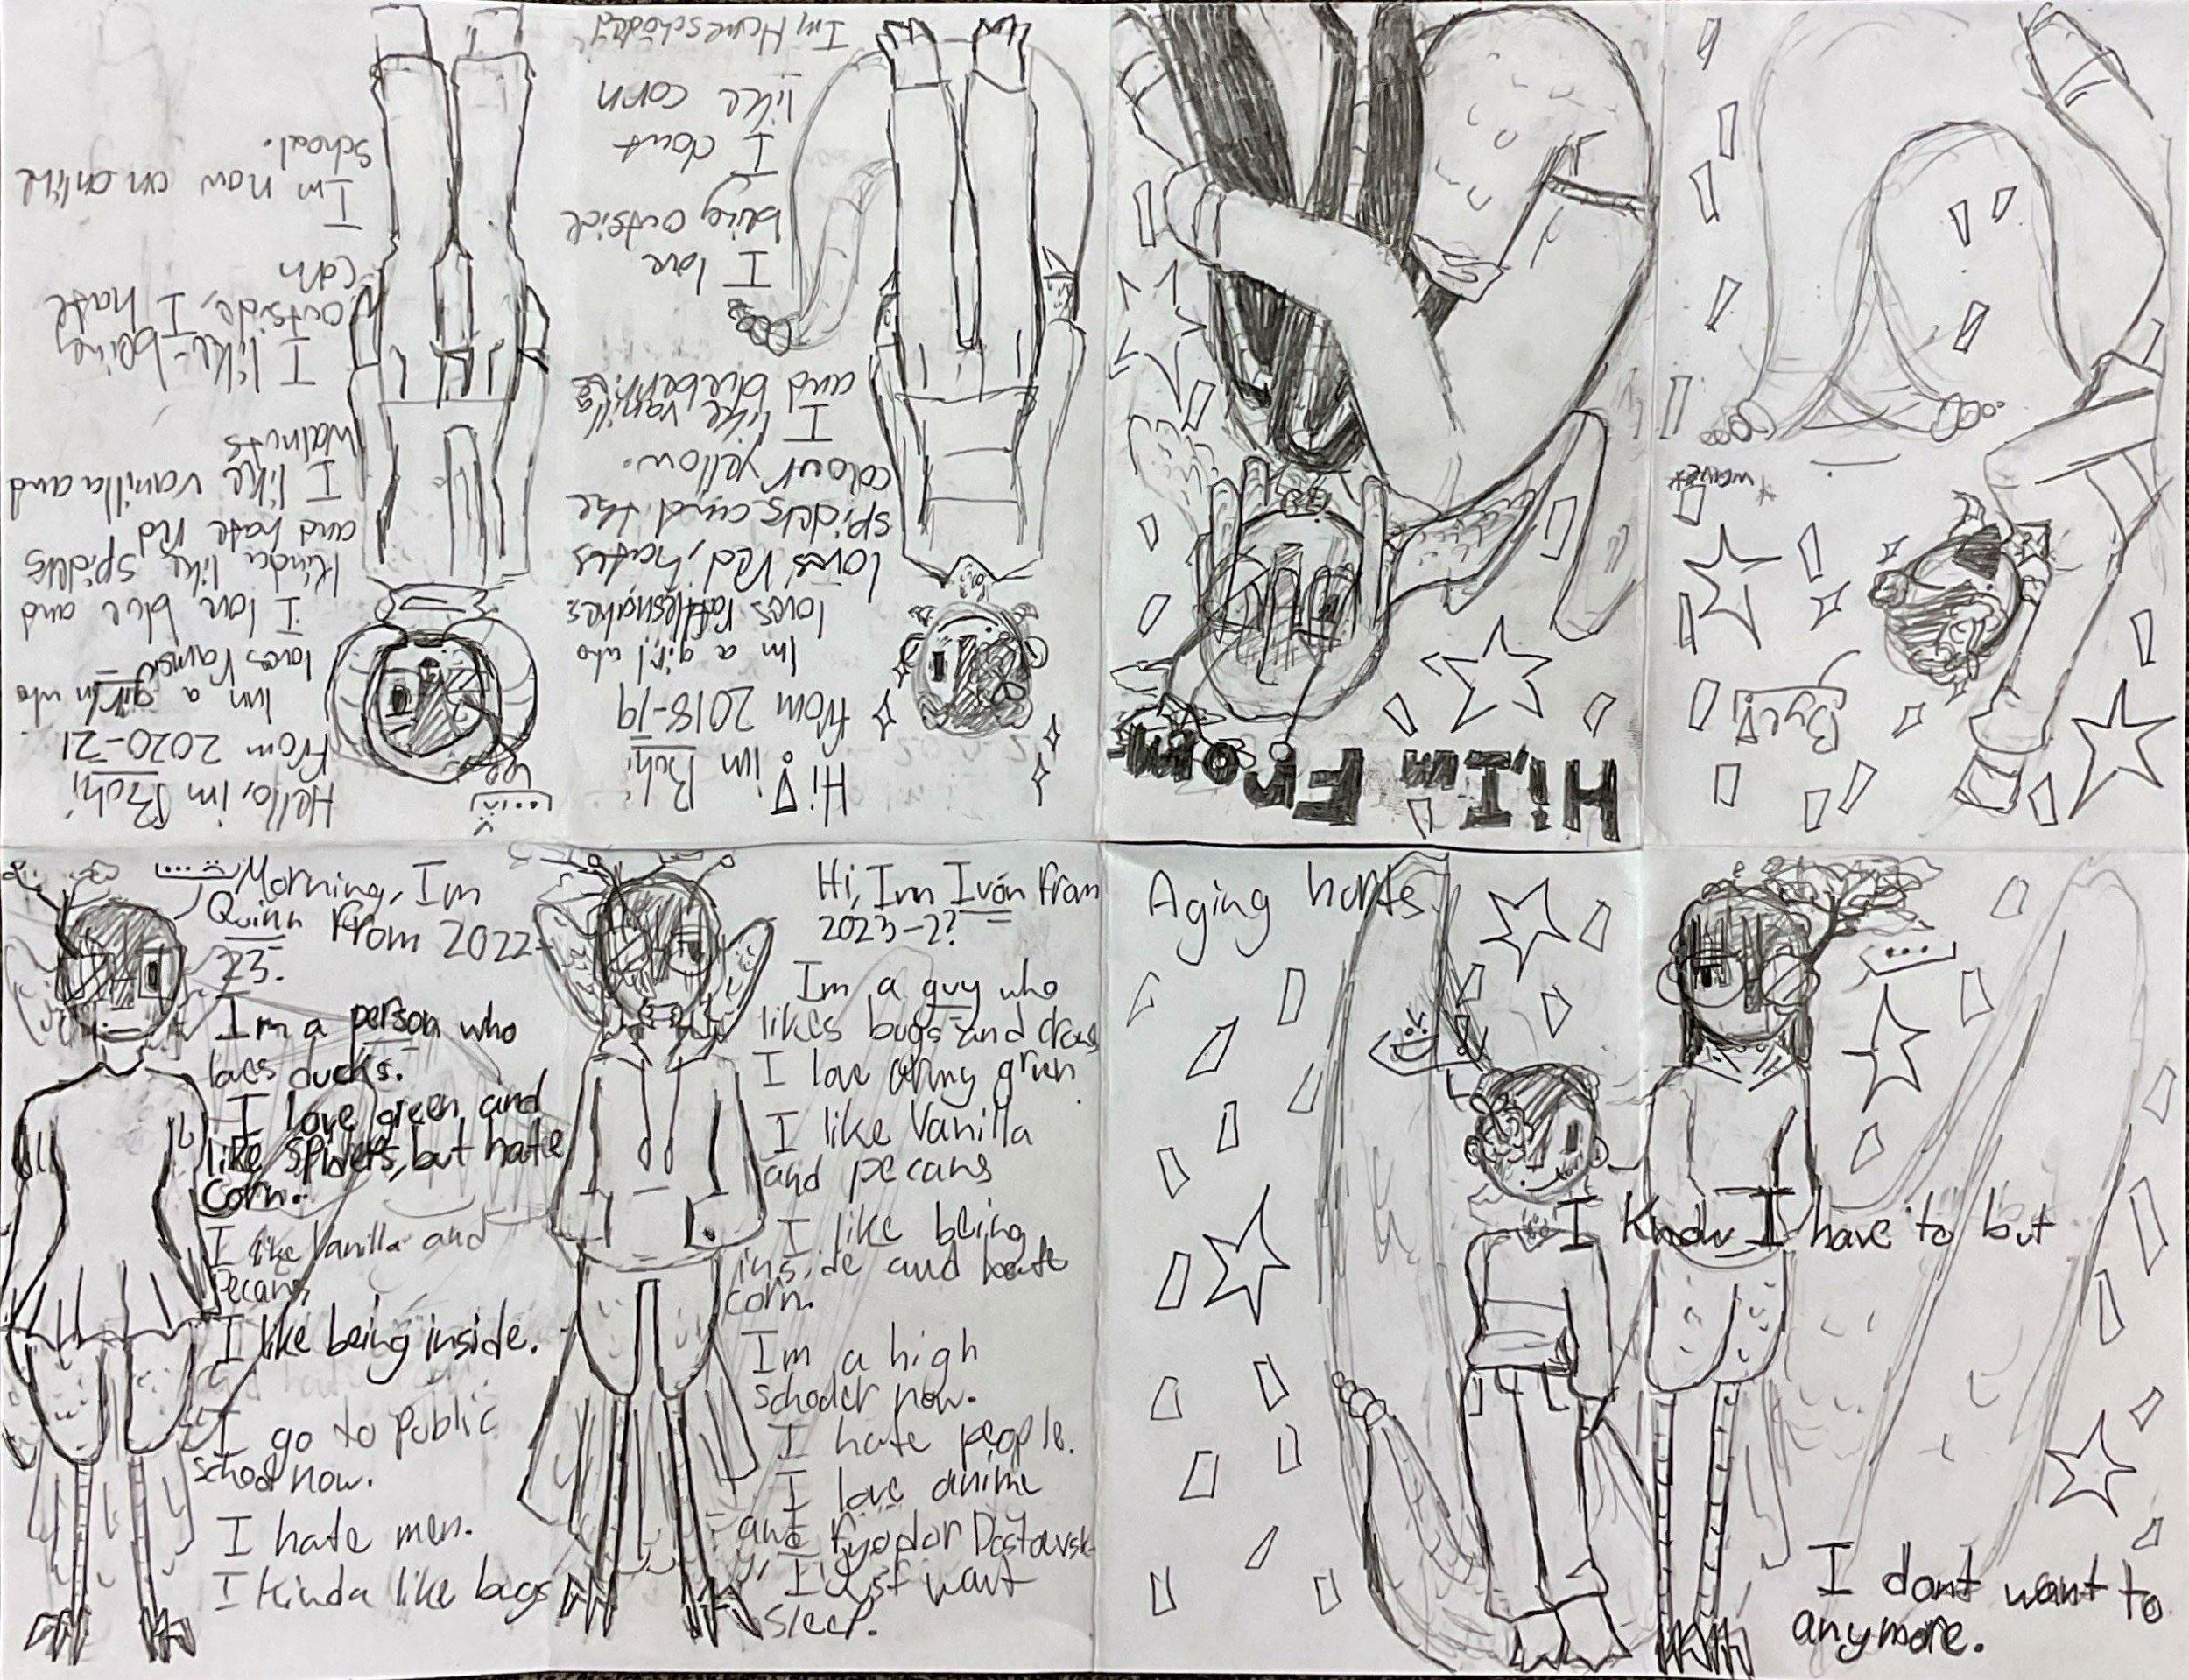 HI, Im From
Hi! im
from 2018-19
Im a girl who
loves rattlesnakes
loves red, hates
spiders, and the
colour yellow.
I like vanilla
and blueberries
I love
being outside
I dont
like corn
I'm Homeschooled
Hello, im
From 2020-21
Im a who
loves
I love blue and
Kinda like spiders
and hate red
I like vanilla and
walnuts
I like being
outside, I hate
corn
Im now on online
school.
Morning, Im
Quinn from 2022-
23.
Im a person who
loves ducks.
I love green, and
like spiders, but hate
corn.
I like Vanilla and
Pecans
I like being inside.
I go to public
school now.
I hate men.
I kinda like bugs
Hi, Im Ivan from
2023-2?
Im a guy who
likes bugs and crows
I love army green
I like Vanilla
and pecans
I like being
inside and hate
corn.
Im a high
schooler now.
I hate people.
I love anime
and Fyodor Dostoevsk-
y, I just want
sleep.
Aging hurts.
...
I Know I have to but
I dont want to
anymore.
Bye!
*wave*